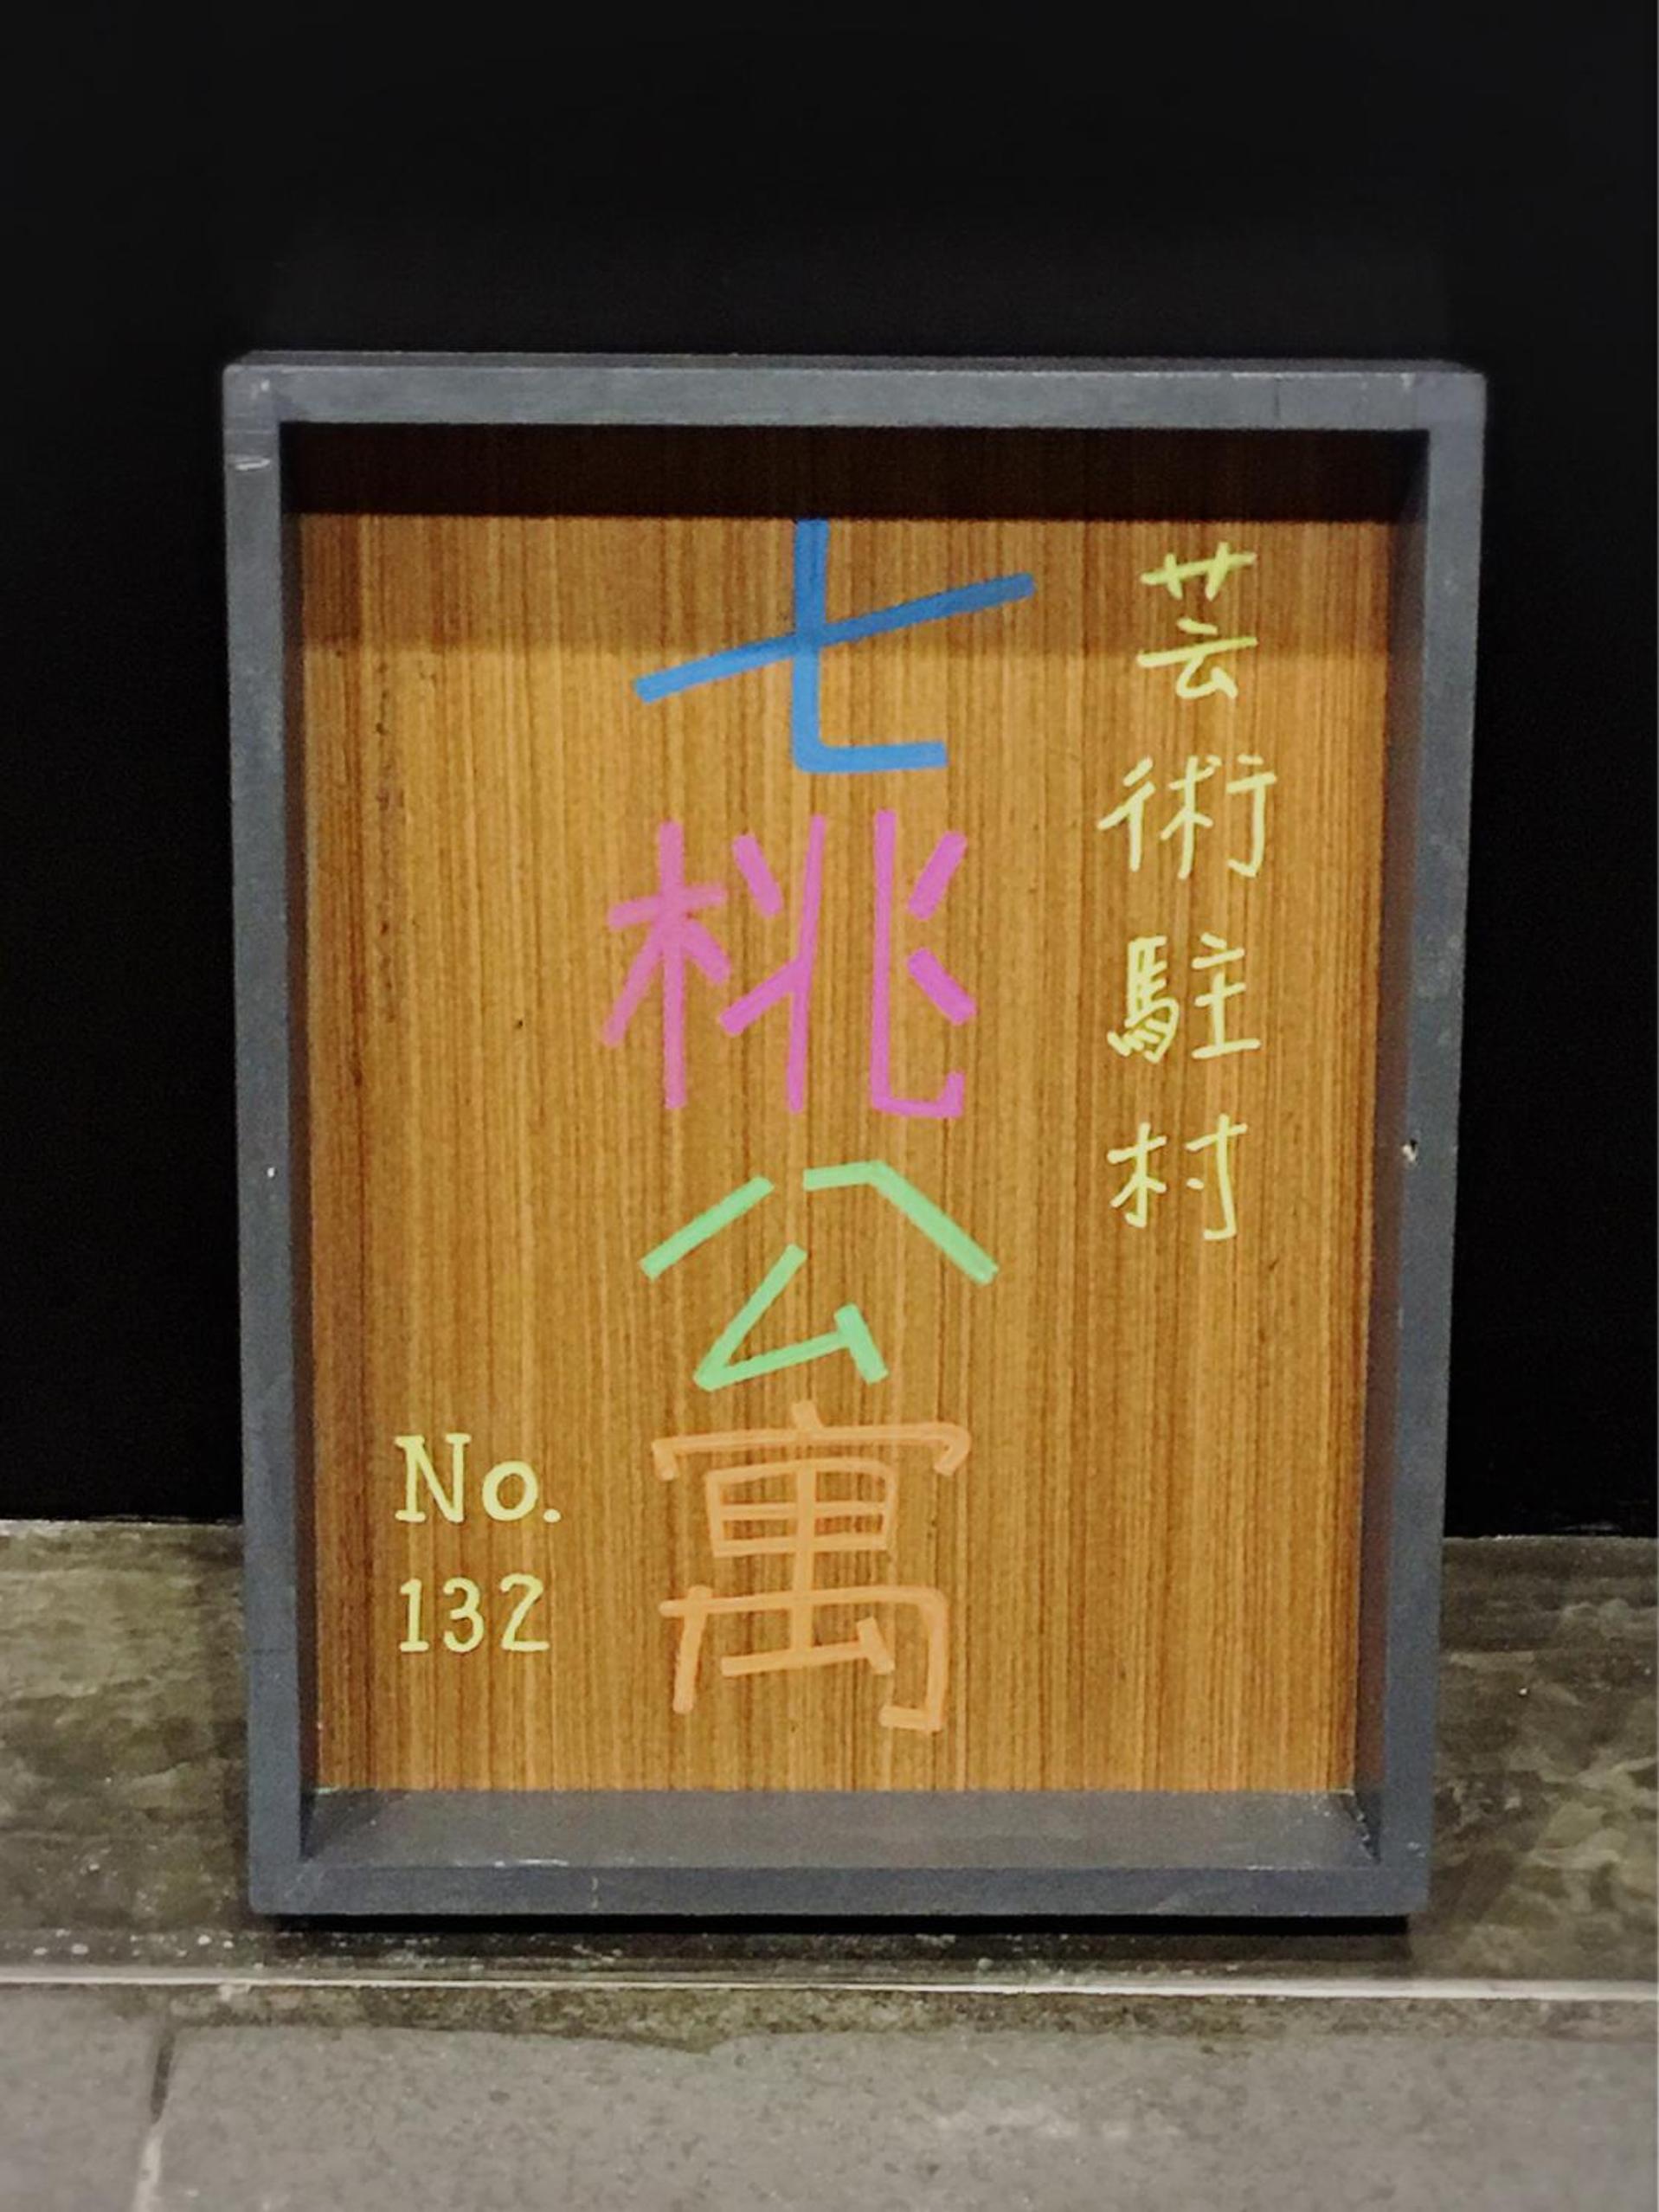 芸術駐村
七桃公寓
No.
132